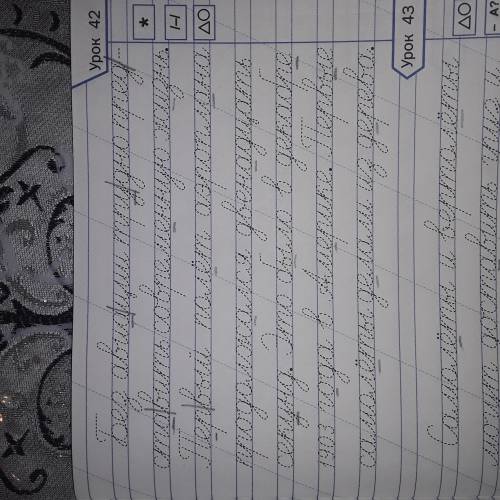 Урок 42
Без авиации трудно пред-
ставить современную жизнь.
Первый полёт аэроплана
продолжался двенадцать
секунд. Это было в декабре
1903 года в Америке. Первые
самолёты из дерева.
Урок 43
Самолёты и вертолёты
- А?